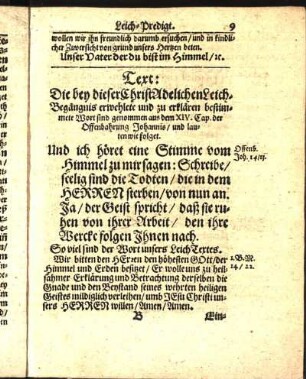 Leich-Predigt. 9
wollen wir ihn freundlich darumb ersuchen / und in kindli-
cher Zuversicht von grund unsers Hertzen beten.
Unser Vater der du bist im Himmel / ꝛc.
Text:
Die bey dieser ChristAdelichen Leich-
Begängnis erwehlete und zu erklären bestim-
mete Wort sind genommen aus dem XIV. Cap. der
Offenbahrung Johannis / und lau-
ten wie folget.
Und ich höret eine Stimme vom
Himmel zu mir sagen: Schreibe /
seelig sind die Todten / die in dem
HERREN sterben / von nun an.
Ja / der Geist spricht / daß sie ru-
hen von ihrer Arbeit / den ihre
Wercke folgen Jhnen nach.
Offenb.
Joh. 14/13.
So viel sind der Wort unsers LeichTextes.
Wir bitten den HErren den höhesten GOtt / der
Himmel und Erden besitzet / Er wolle uns zu heil-
sahmer Erklärung und Betrachtung derselben die
Gnade und den Beystand seines wehrten heiligen
Geistes mildiglich verleihen / umb JEsu Christi un-
sers HERREN willen / Amen / Amen.
1. B. M.
14/22.
B Ein-